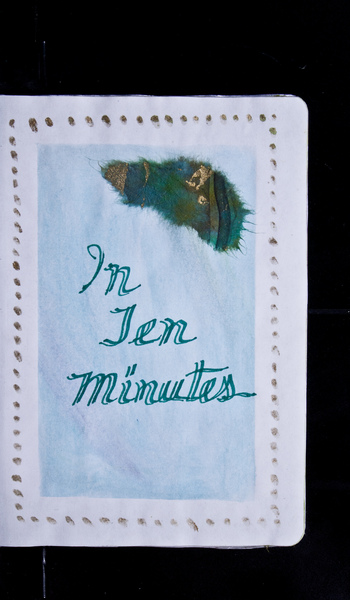 In
Ten
Minutes